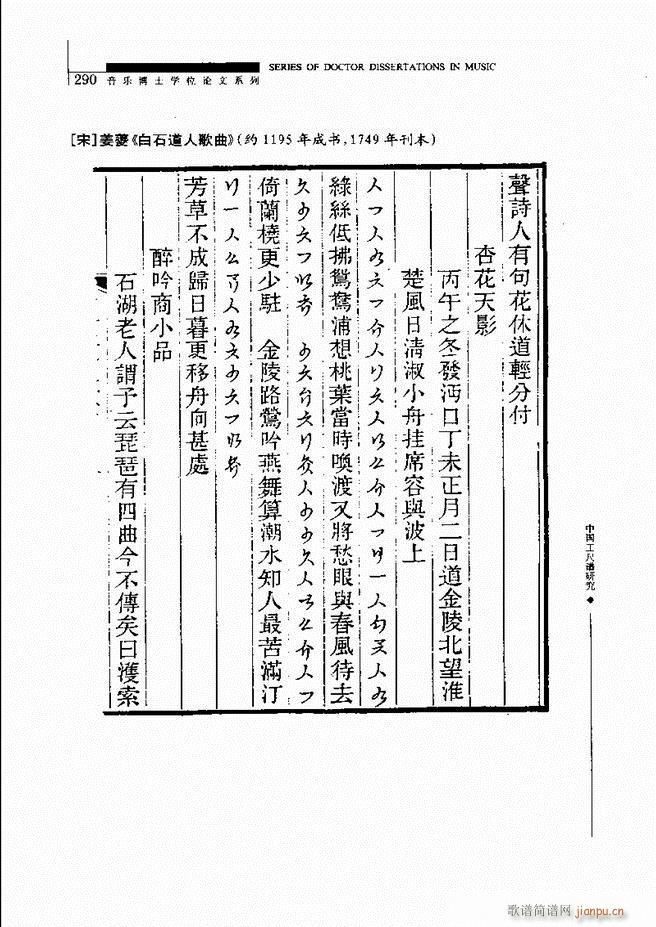 SERIES OF DOCTOR DISSERTATIONS IN MUSIC
290 音乐博士学位论文系列
[宋]姜夔《白石道人歌曲》(约1195年成书,1749年刊本)
聲詩人有句花休道輕分付
杏花天影
丙午之冬發沔口丁未正月二日道金陵北望淮
楚風日清淑小舟挂席容與波上
綠絲低拂鴛鴦浦想桃葉當時喚渡又將愁眼與春風待去
倚蘭橈更少駐 金陵路鶯吟燕舞算潮水知人最苦滿汀
芳草不成歸日暮更移舟向甚處
醉吟商小品
石湖老人謂予云琵琶有四曲今不傳矣曰濩索
中国工尺谱研究
歌谱简谱网 jianpu.cn